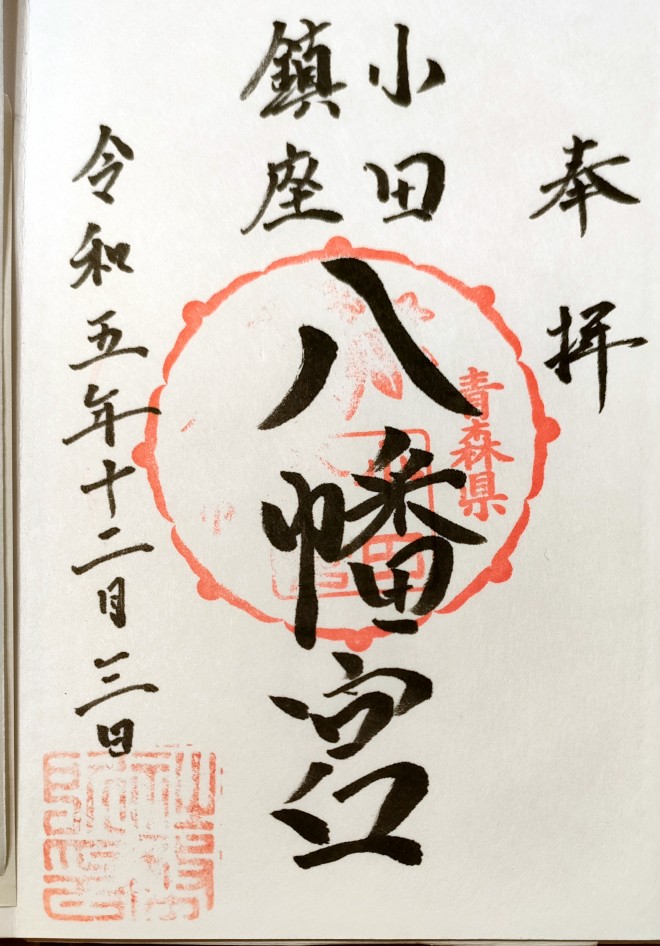 奉拝
小田
鎮座
八幡宮
青森県
令和五年十二月三日